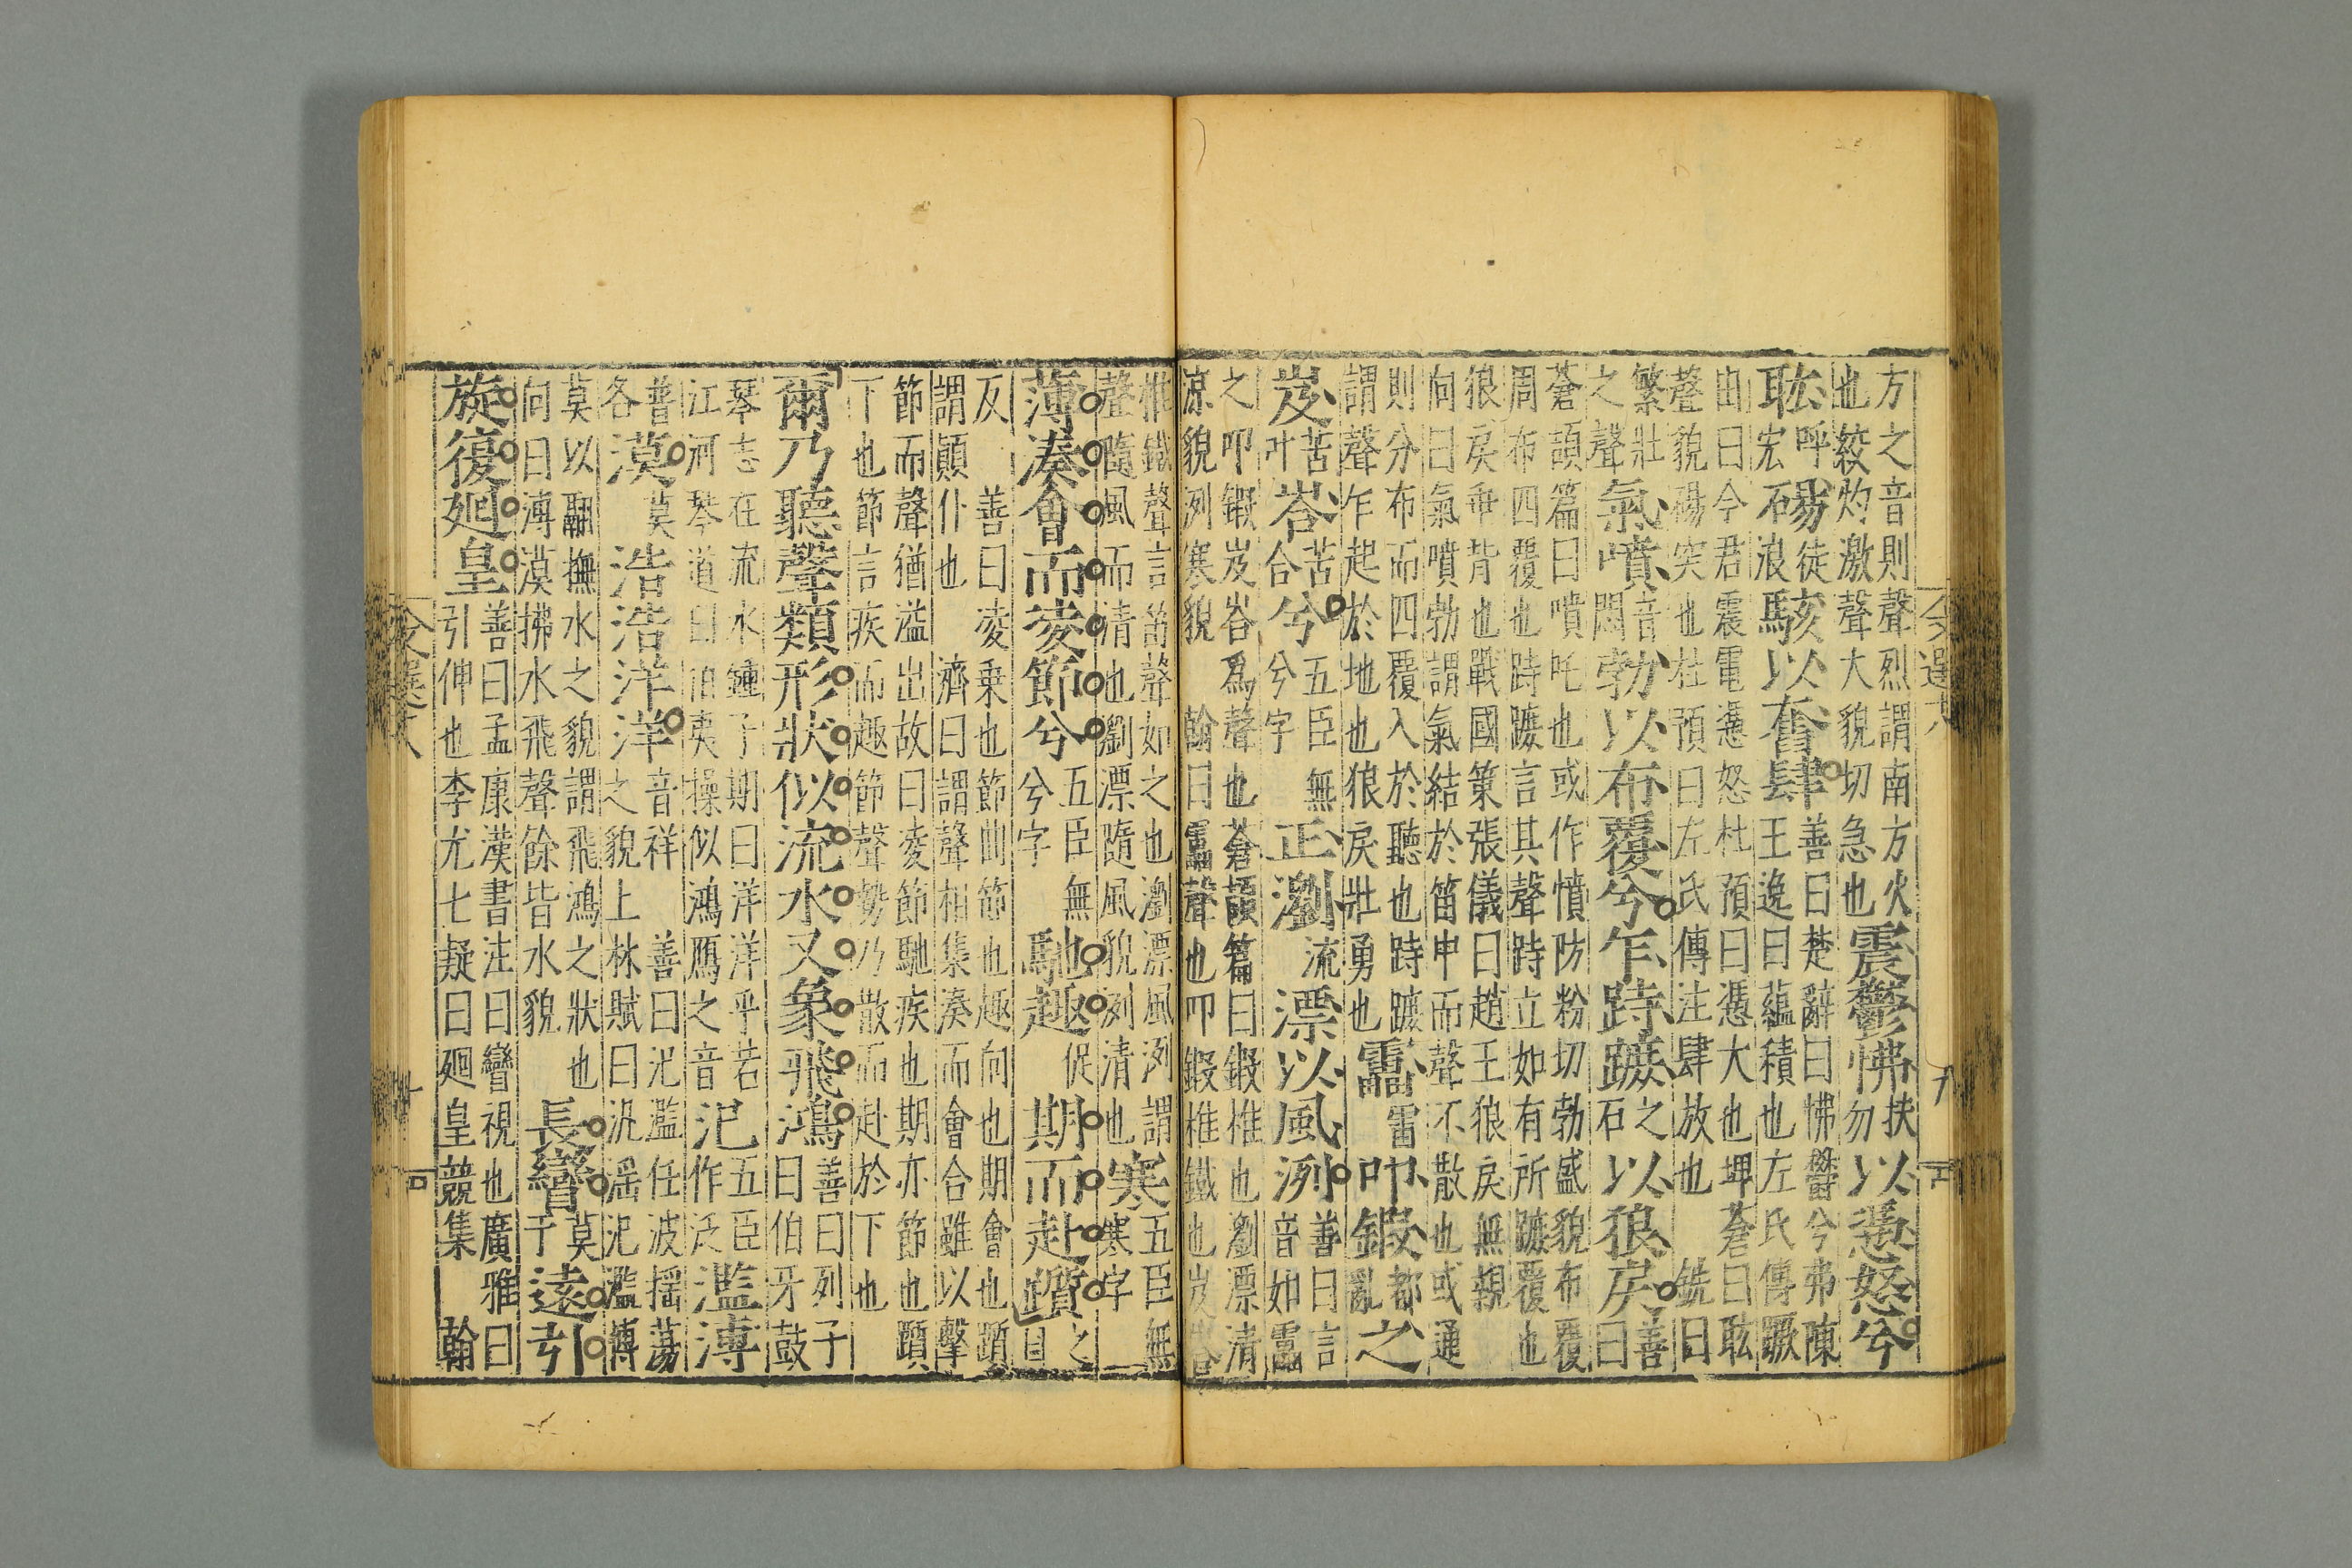 方之音則聲烈謂南方火也絞灼激聲大貌切急也震鬱怫扶勿以憑怒兮
耾呼宏碭徒浪駭以奮肆善曰楚辭曰怫鬱兮弗陳王逸曰蘊積也左氏傳蹶
由曰今君震電憑怒杜預曰憑大也埤蒼曰耾聲貌碭突也杜預曰左氏傳注肆放也銑曰
繁壯之聲氣噴音悶勃以布覆兮乍跱蹠之石以狼戾善曰
蒼頡篇曰噴吒也或作憤防粉切勃盛貌布覆周布四覆也跱蹠言其聲跱立如有所蹠覆也
狼戾乖背也戰國策張儀曰趙王狼戾無親向曰氣噴勃謂氣結於笛申而聲不散也或通
則分布而四覆入於聽也跱蹠謂聲乍起於地也狼戾壯勇也靁雷叩鍛都亂之
岌苦叶峇苦合兮五臣無兮字正瀏流漂以風洌善曰言音如靁
之叩鍛岌峇爲聲也蒼頡篇曰鍛椎也瀏漂清涼貌洌寒貌翰曰靁聲也叩鍛椎鐵也岌峇
椎鐵聲言笛聲如之也瀏漂風洌謂聲隨風而清也瀏漂隨風貌洌清也寒五臣無寒字
薄湊會而凌節兮五臣無兮字馳趣促期而赴躓之目
反善曰凌乘也節曲節也趣向也期會也躓謂顛仆也濟曰謂聲相集湊而會合雖以擊
節而聲猶溢出故曰凌節馳疾也期亦節也躓下也節言疾而趣節聲勢乃散而赴於下也
爾乃聽聲類形狀似流水又象飛鴻善曰列子曰伯牙鼓
琴志在流水鍾子期曰洋洋乎若江河琴道曰伯夷操似鴻鴈之音氾五臣作泛濫溥
普各漠莫浩浩洋洋音祥善曰氾濫任波搖蕩之貌上林賦曰汎淫氾濫溥
莫以翩撫水之貌謂飛鴻之狀也向曰溥漠拂水飛聲餘皆水貌長矕莫于遠引
旋復廻皇善曰孟康漢書注曰矕視也廣雅曰引伸也李尤七疑曰廻皇競集翰